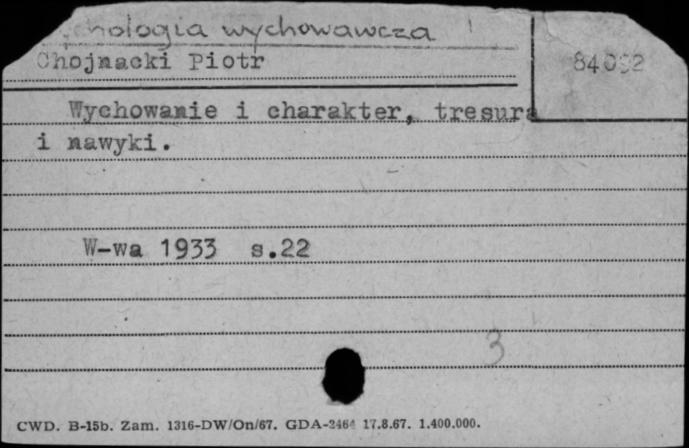 wychowawcza
Chojnacki Piotr
Wychowanie i charakter, tresura
i nawyki.
W-wa 1933 s.22
3
CWD. B-15b. Zam. 1316-DW/On/67. GDA-2464 17.8.67. 1.400.000.